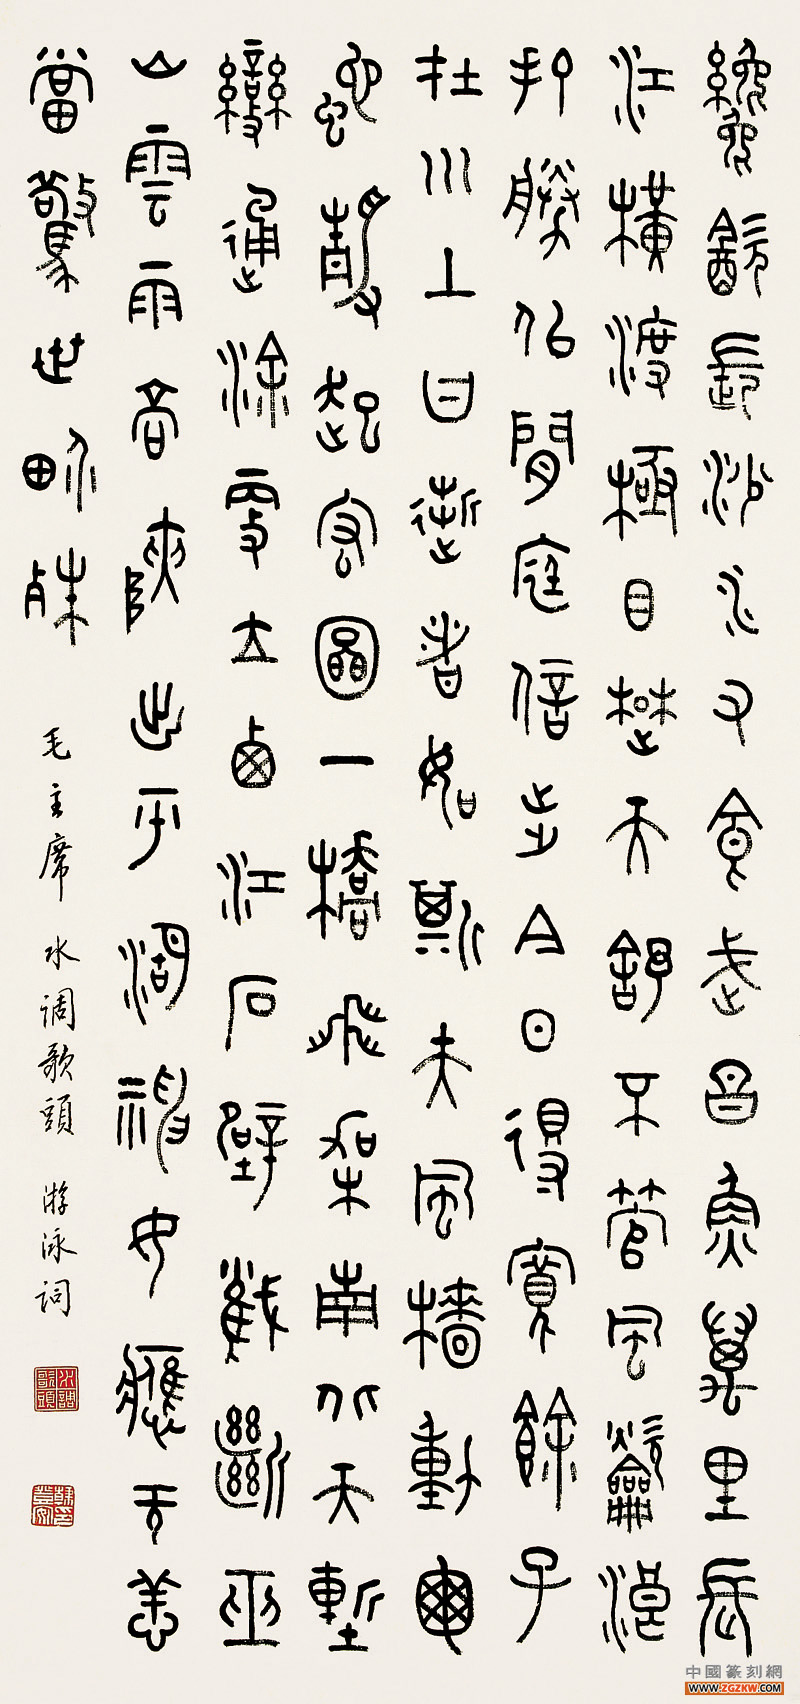 纔飲長沙水又食武昌魚萬里長
江橫渡極目楚天舒不管風龡浪
打勝佀閒庭信步今日得寬餘子
在川上曰逝者如斯夫風檣動龜
蛇靜起宏圖一橋飛架南北天塹
變通涂更立西江石壁截斷巫
山雲雨高陝出平湖神女應无恙
當驚世界殊
毛主席 水调歌頭 游泳词
水調歌頭
中國篆刻網
www.zgzkw.com